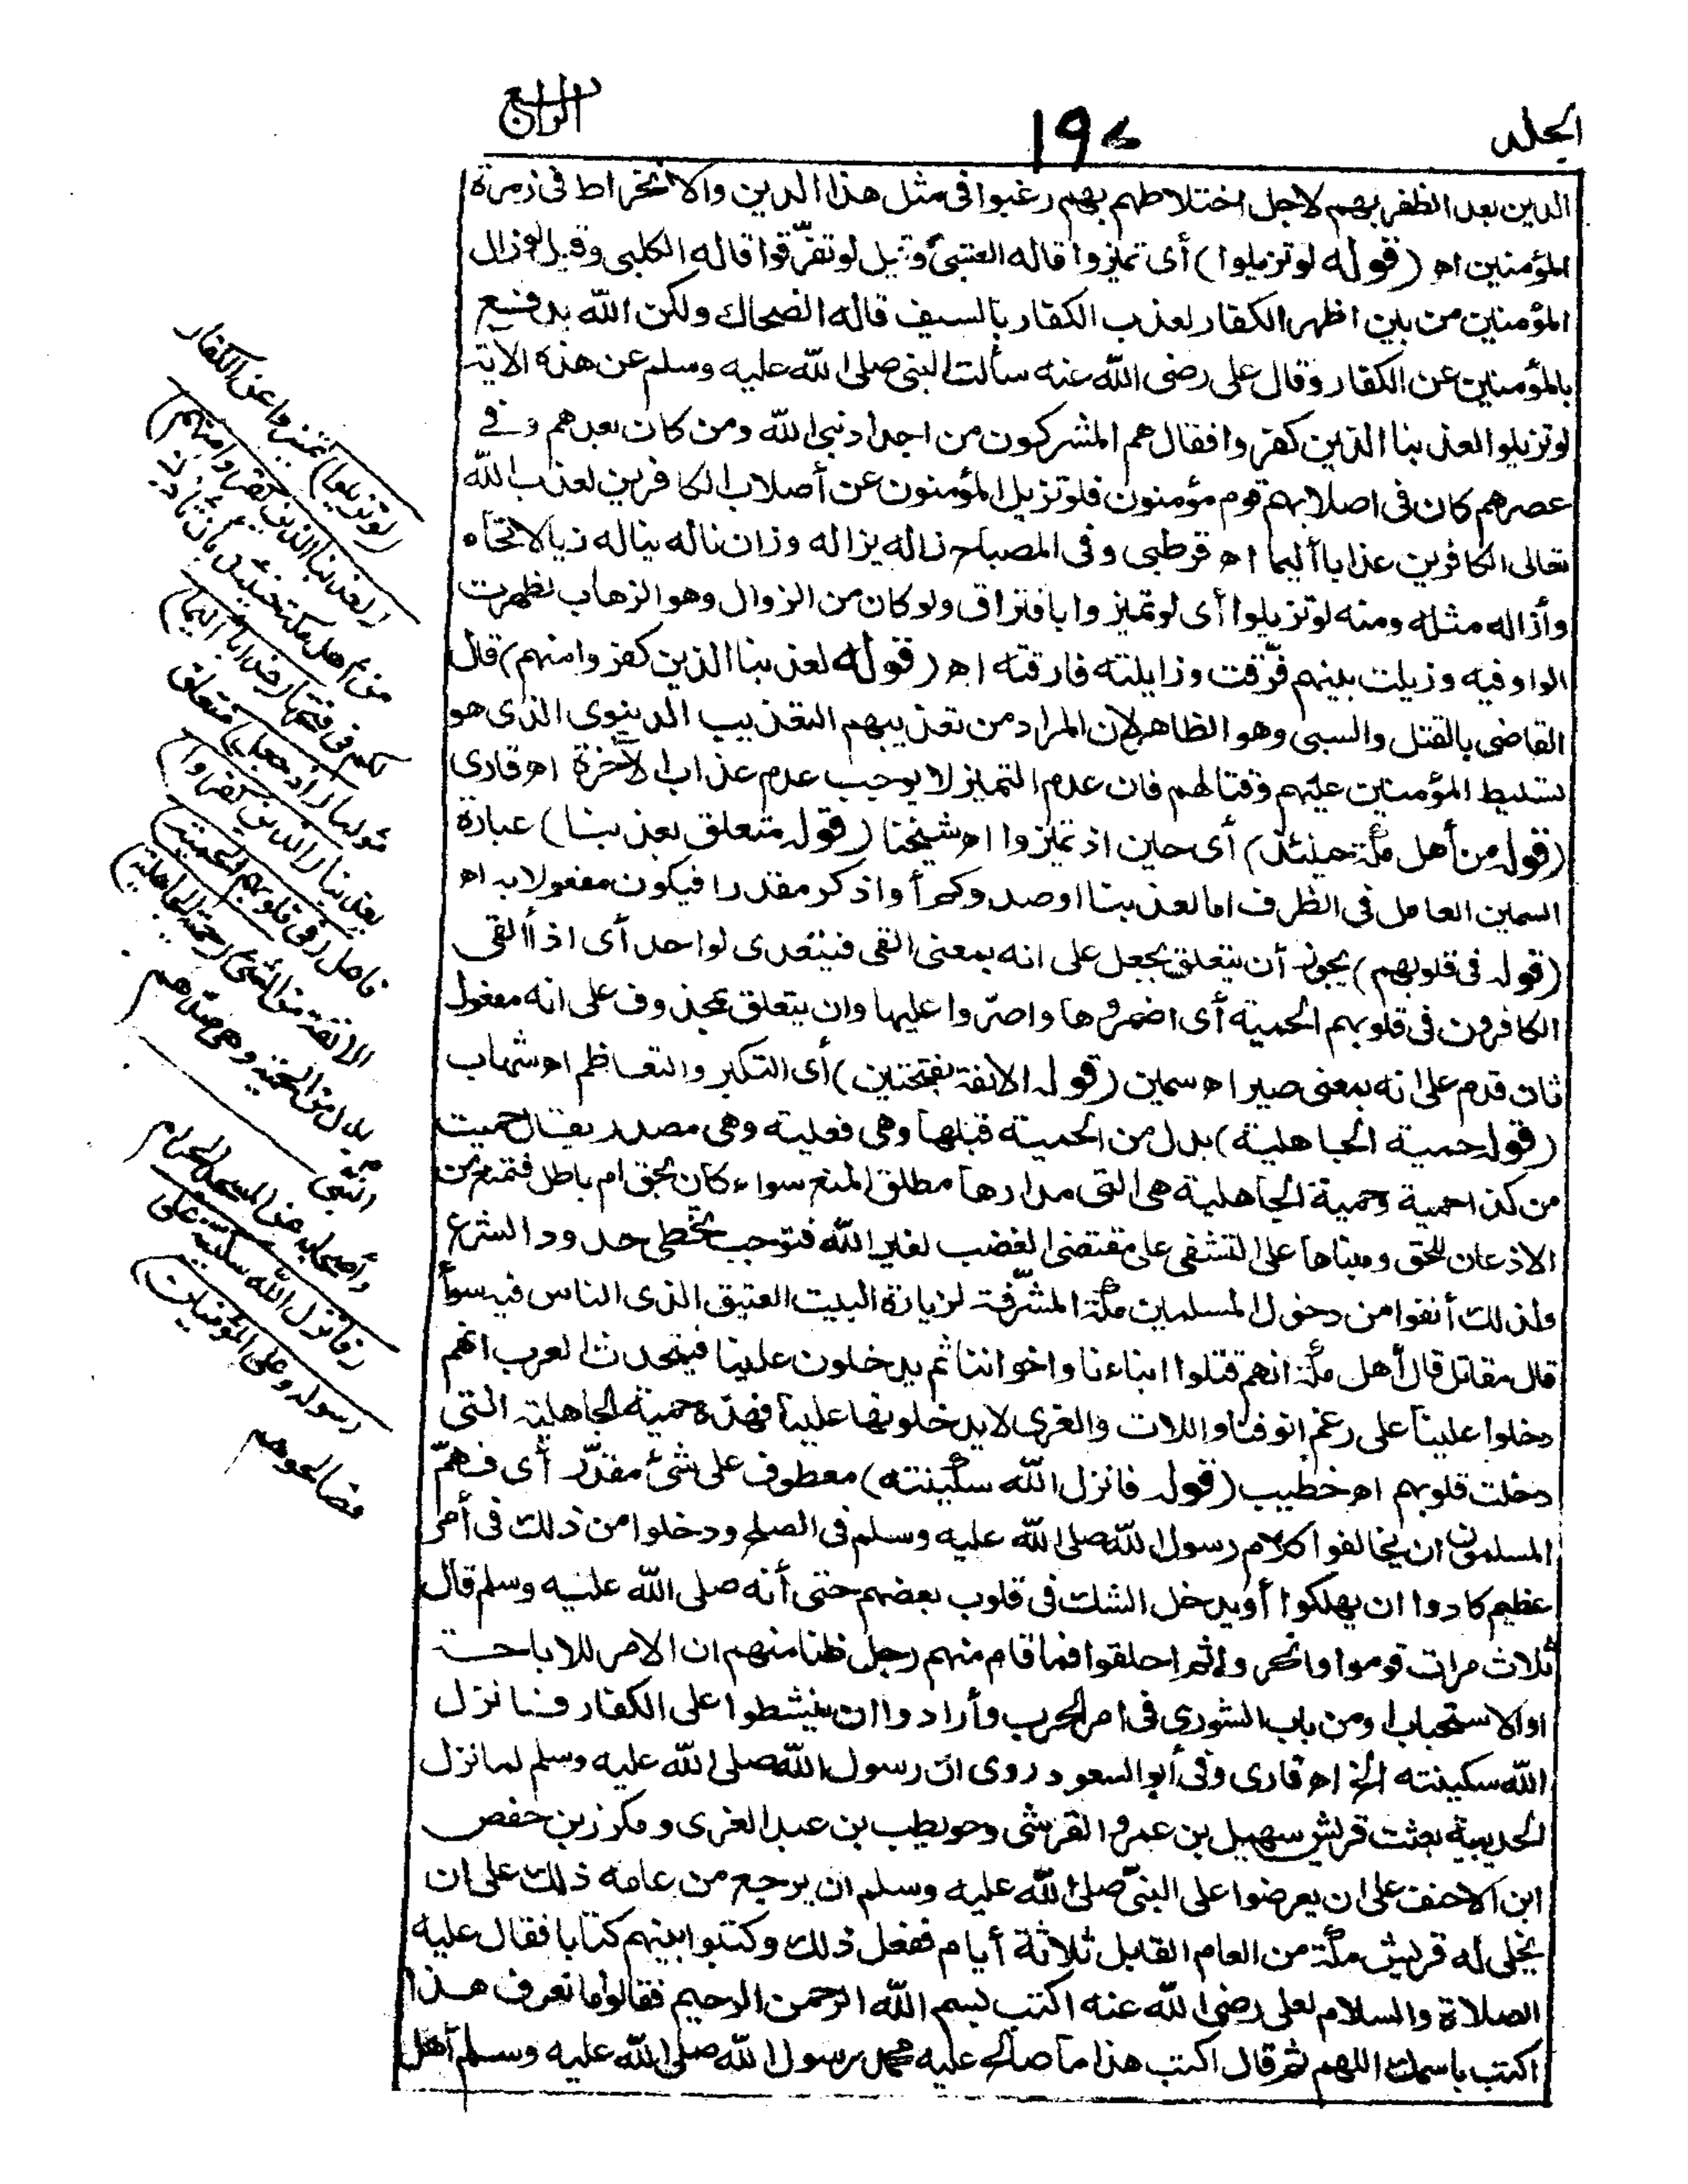 الجلد ١٩٤ الرابع
الدين بعد الظفر بهم لاجل اختلاطهم بهم رغبوا فى مثل هذا الدين والانخراط فى زمرة
المؤمنين اه (قوله لو تزيلوا) أى تميزوا قاله العتبى وقيل لو تفرّقوا قاله الكلبى وقيل لو زال
المؤمنين من بين اظهر الكفار لعذب الكفار بالسيف قاله الضحاك ولكن الله يدفع
بالمؤمنين عن الكفار وقال على رضى الله عنه سألت النبى صلى الله عليه وسلم عن هذه الاية
لو تزيلوا لعذبنا الذين كفروا فقال هم المشركون من اجداد نبى الله ومن كان بعدهم وفى
عصرهم كان فى اصلابهم قوم مؤمنون فلو تزيل المؤمنون عن أصلاب الكافرين لعذب الله
تعالى الكافرين عذابا أليما اه قرطبى وفى المصباح زاله يزاله وزان ناله يناله زيالا نحاه
وأزاله مثله ومنه لو تزيلوا أى لو تميزوا بافتراق ولو كان من الزوال وهو الذهاب لظهرت
الواو فيه وزيلت بينهم فرّقت وزايلته فارقته اه (قوله لعذبنا الذين كفروا منهم) قال
القاضى بالقتل والسبى وهو الظاهر لان المراد من تعذيبهم التعذيب الدنيوى الذى هو
تسليط المؤمنين عليهم وقتالهم فان عدم التميز لا يوجب عدم عذاب الآخرة اه قارى
(قوله من أهل مكة حينئذ) أى حين اذ تميزوا اه شيخنا (قوله متعلق بعذبنا) عبارة
السمين العامل فى الظرف اما لعذبنا او صدوكم أو اذكر مقدرا فيكون مفعولا به اه
(قوله فى قلوبهم) يجوز أن يتعلق بجعل على انه بمعنى القى فيتعدى لواحد أى اذ ألقى
الكافرون فى قلوبهم الحمية أى اضمروها واصرّوا عليها وان يتعلق بمحذوف على انه مفعول
ثان قدم على انه بمعنى صير اه سمين (قوله الانفة بفتحتين) أى التكبر والتعاظم اه شهاب
(قوله حمية الجاهلية) بدل من الحمية قبلها وهى فعلية وهى مصدر يقال حميت
من كذا حمية وحمية الجاهلية هى التى مدارها مطلق المنع سواء كان بحق ام باطل فتمنع من
الاذعان للحق ومبناها على التشفى على مقتضى الغضب لغير الله فتوجب تخطى حدود الشرع
ولذلك أنفوا من دخول المسلمين مكة المشرّفة لزيارة البيت العتيق الذى الناس فيه سوأ
قال مقاتل قال أهل مكة انهم قتلوا ابناءنا واخواننا ثم يدخلون علينا فيتحدث العرب انهم
دخلوا علينا على رغم انوفنا واللات والعزى لا يدخلونها علينا فهذه حمية الجاهلية التى
دخلت قلوبهم اه خطيب (قوله فانزل الله سكينته) معطوف على شئ مقدّر أى فهمّ
المسلمون ان يخالفوا كلام رسول الله صلى الله عليه وسلم فى الصلح ودخلوا من ذلك فى أمر
عظيم كادوا ان يهلكوا أو يدخل الشك فى قلوب بعضهم حتى أنه صلى الله عليه وسلم قال
ثلاث مرات قوموا وانحروا ثم احلقوا فما قام منهم رجل ظنا منهم ان الامر للاباحة
او الاستحباب او من باب الشورى فى امر الحرب وأرادوا ان ينشطوا على الكفار فانزل
الله سكينته الخ اه قارى وفى أبو السعود روى ان رسول الله صلى الله عليه وسلم لما نزل
الحديبية بعثت قريش سهيل بن عمرو القرشى وحويطب بن عبد العزى ومكرز بن حفص
ابن الاحنف على ان يعرضوا على النبىّ صلى الله عليه وسلم ان يرجع من عامه ذلك على ان
يخلى له قريش مكة من العام القابل ثلاثة أيام ففعل ذلك وكتبوا بينهم كتابا فقال عليه
الصلاة والسلام لعلى رضى الله عنه اكتب بسم الله الرحمن الرحيم فقالوا ما نعرف هذا
اكتب باسمك اللهم ثم قال اكتب هذا ما صالح عليه محمد رسول الله صلى الله عليه وسلم أهل
(لو تزيلوا) تميزوا عن الكفار
(لعذبنا الذين كفروا منهم)
من أهل مكة حينئذ بان نأذن
لكم فى فتحها (عذابا أليما)
(اذ جعل) متعلق
بعذبنا (الذين كفروا)
فاعل (فى قلوبهم الحمية)
الانفة من الشئ (حمية الجاهلية)
بدل من الحمية وهى صدهم
النبى
وأصحابه عن المسجد الحرام
(فانزل الله سكينته على
رسوله وعلى المؤمنين)
فصالحوهم